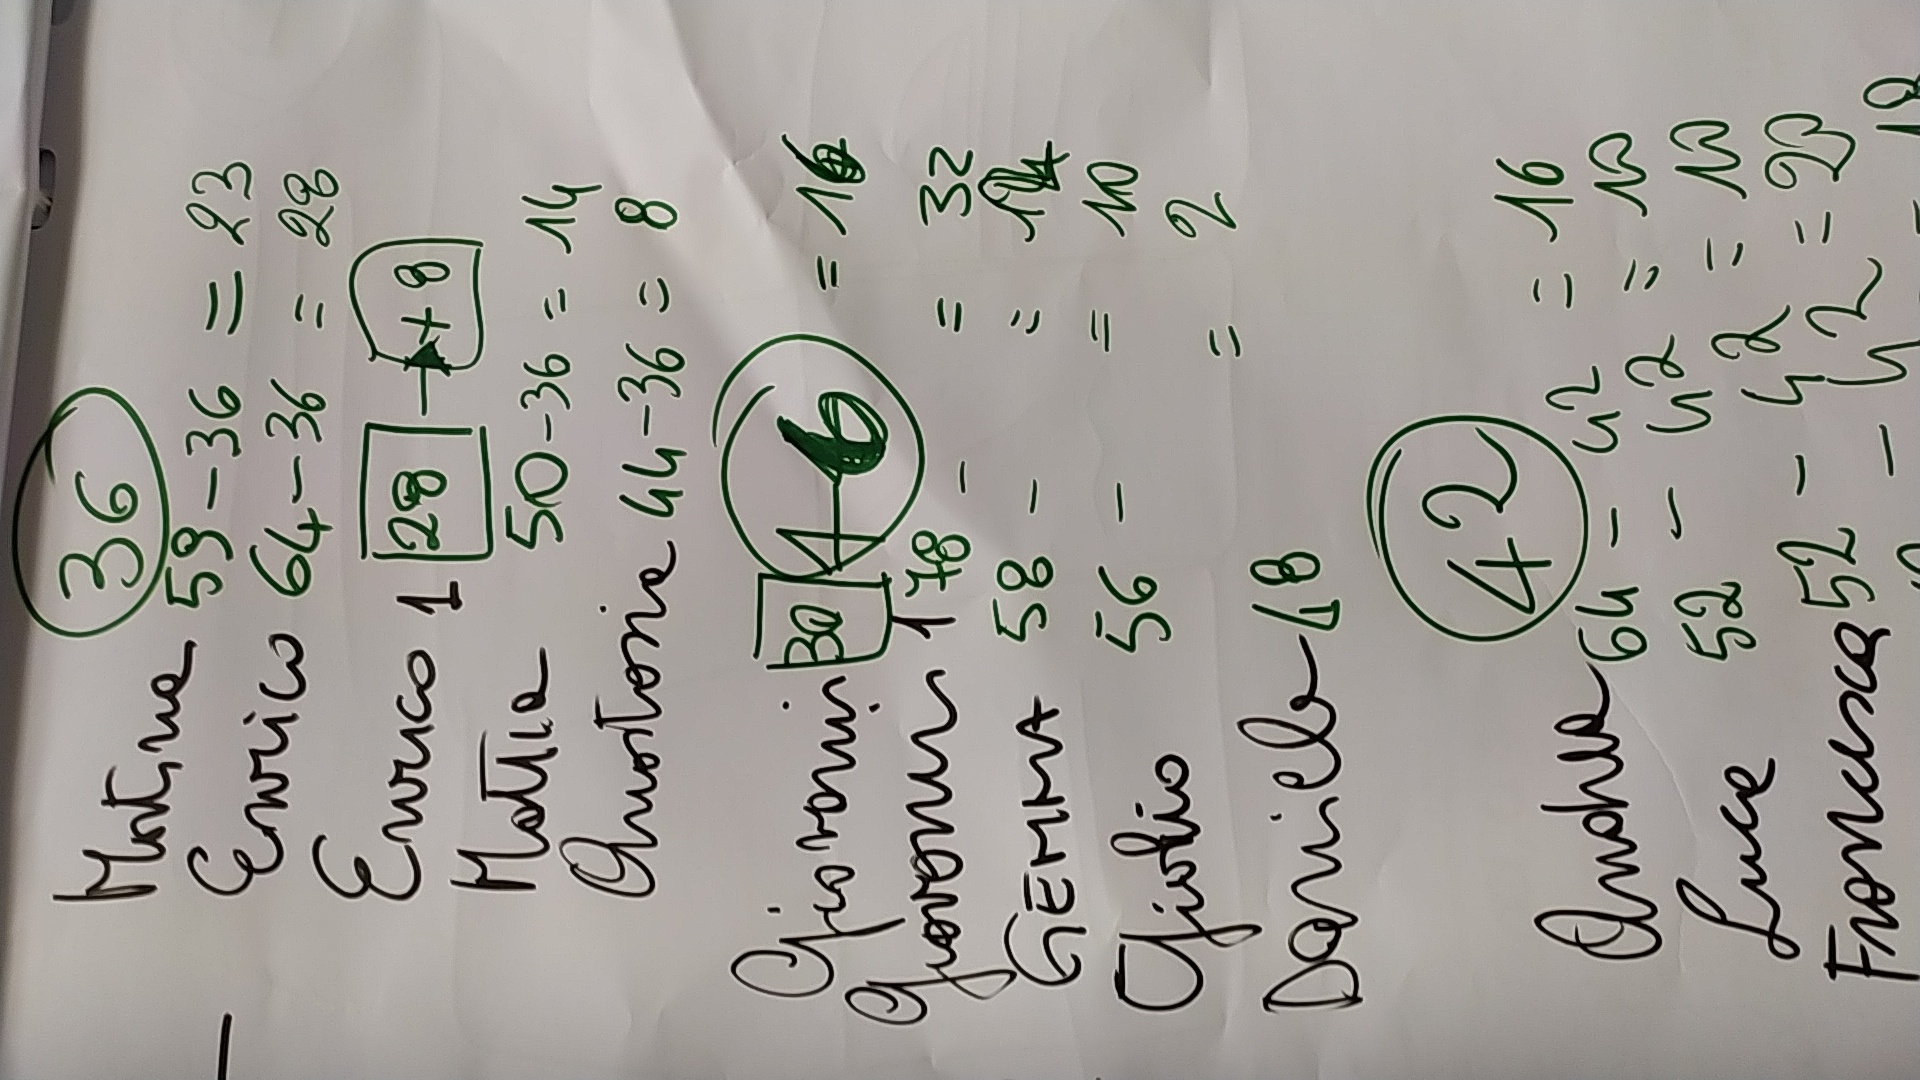 36
Martina 59 - 36 = 23
Enrico 64 - 36 = 28
Enrico 1 28 → + 8
Mattia 50 - 36 = 14
Anastasia 44 - 36 = 8
46
Giovanni 30 = 16
Giovanni 1 78 - = 32
GEMMA 58 - = 12
Giulio 56 - = 10
Daniele 48 = 2
42
Andrea 64 - 42 = 16
Luca 52 - 42 = 10
Francesca 52 - 42 = 10
- 42 = 20
= 18